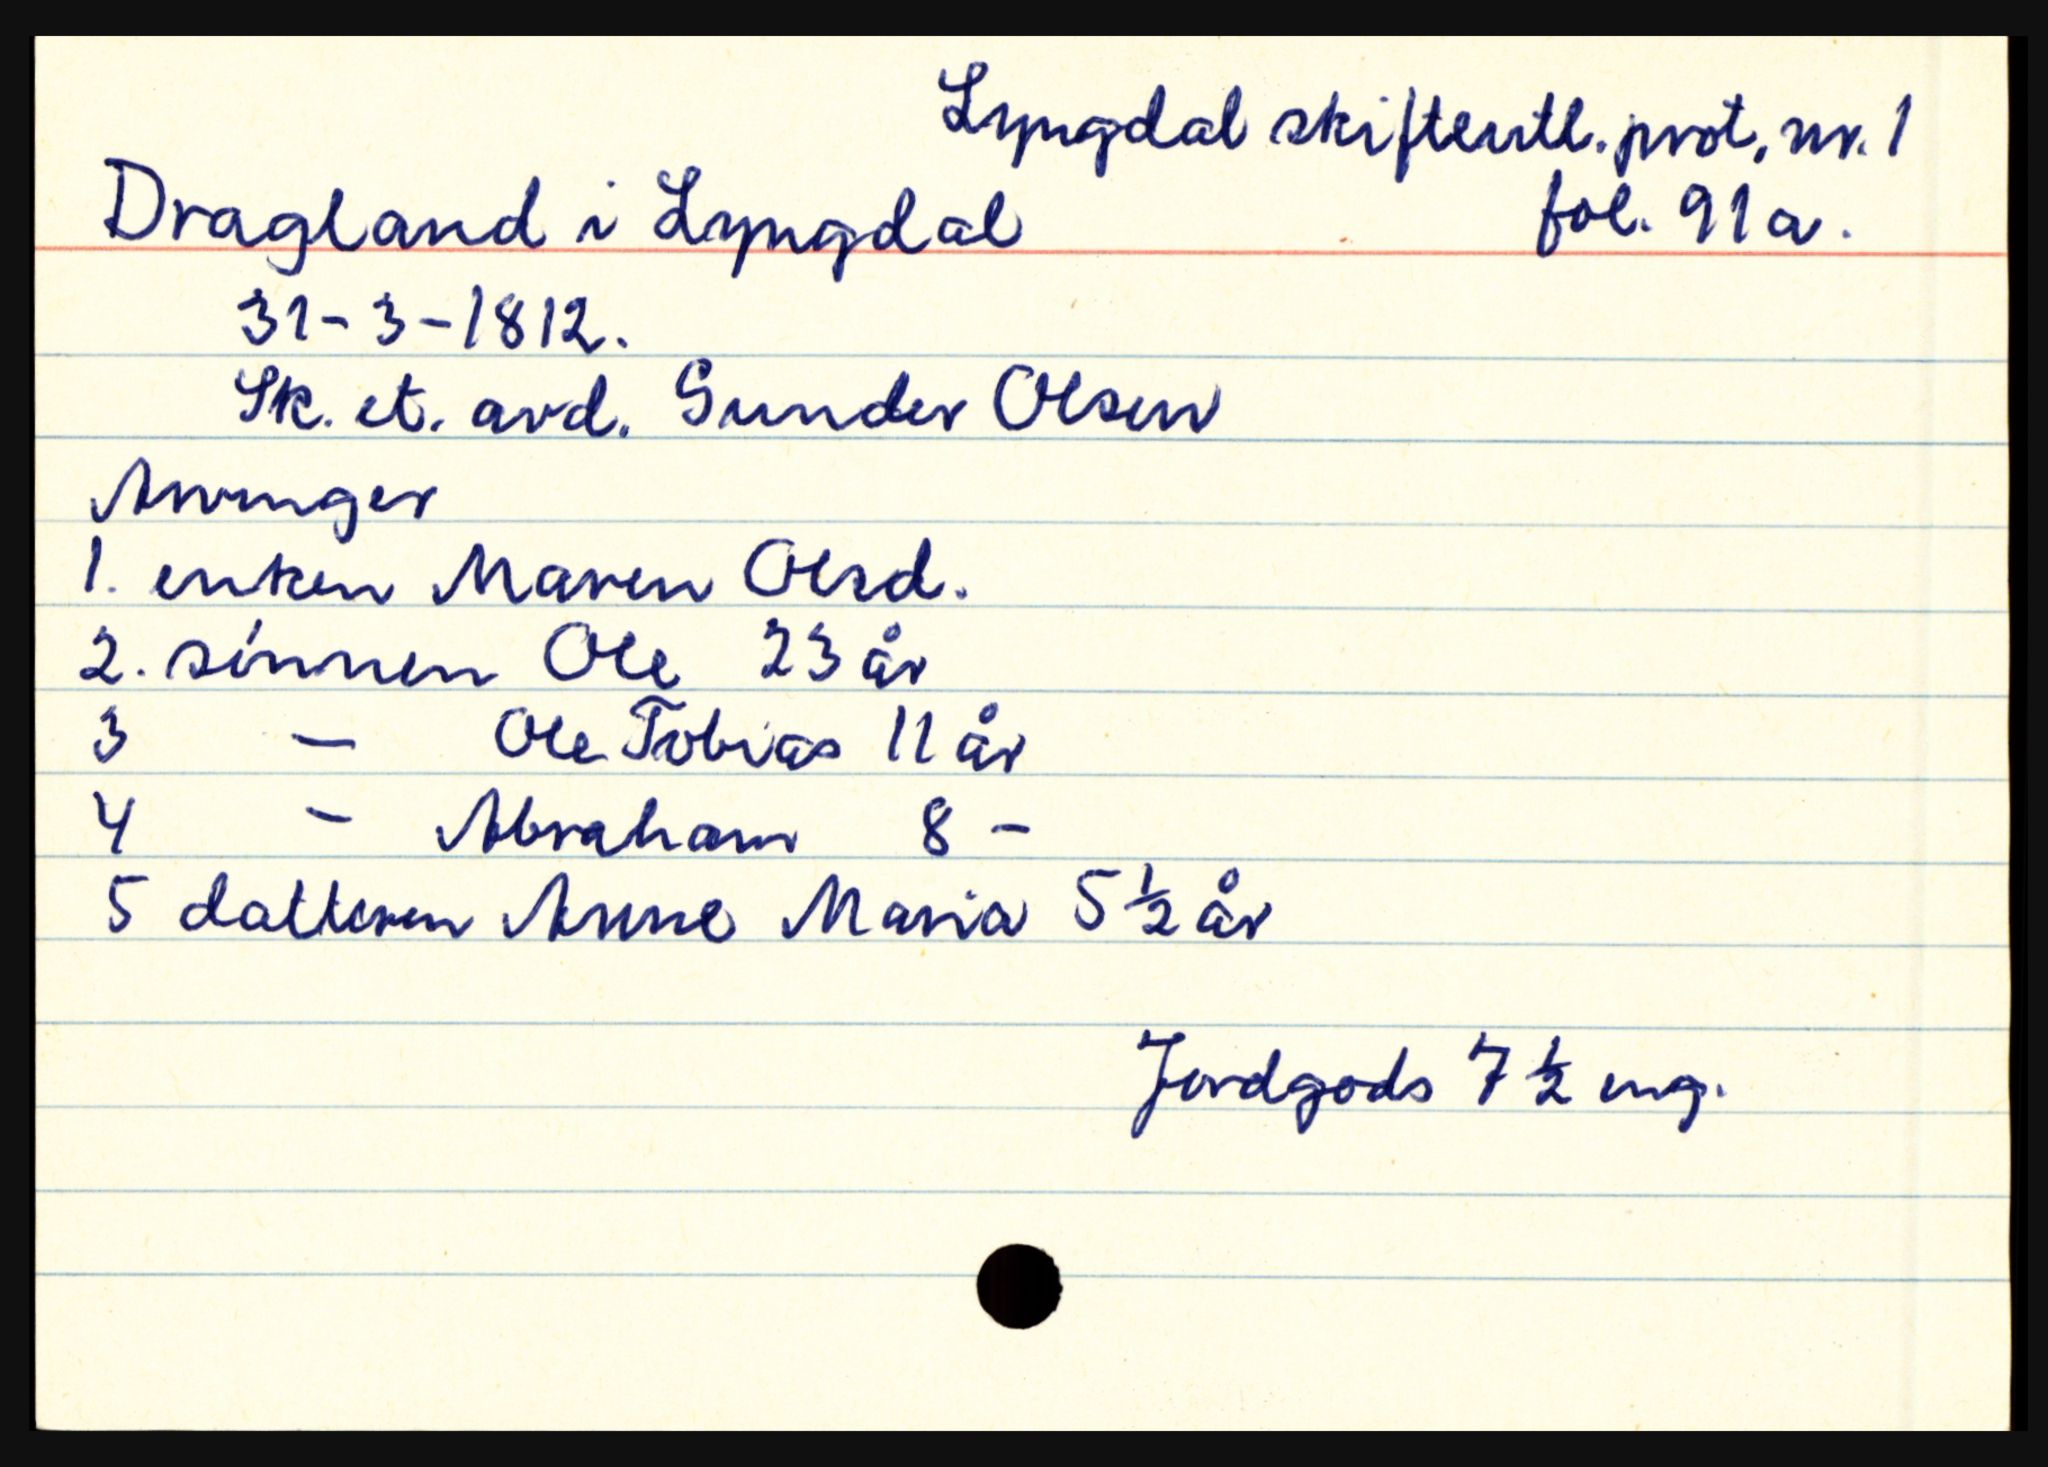 Lyngdal skifteutl. prot. nr. 1
fol. 91a.
Dragland i Lyngdal
31-3-1812.
Sk. et. avd. Gunder Olsen
Arvinger
1. enken Maren Olsd.
2. sönnen Ole 23 år
3 — Ole Tobias 11 år
4 - Abraham 8 -
5 datteren Anne Maria 5 1/2 år
Jordgods 7 1/2 eng.